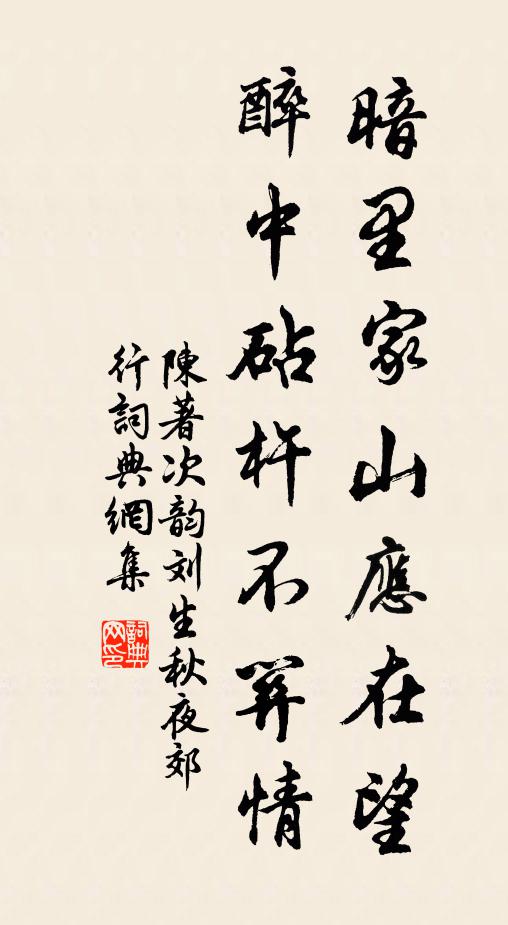 暗里家山應在望
醉中砧杵不筭情
陳著次韵刘生秋夜郊
行詞典網集
詞典网印